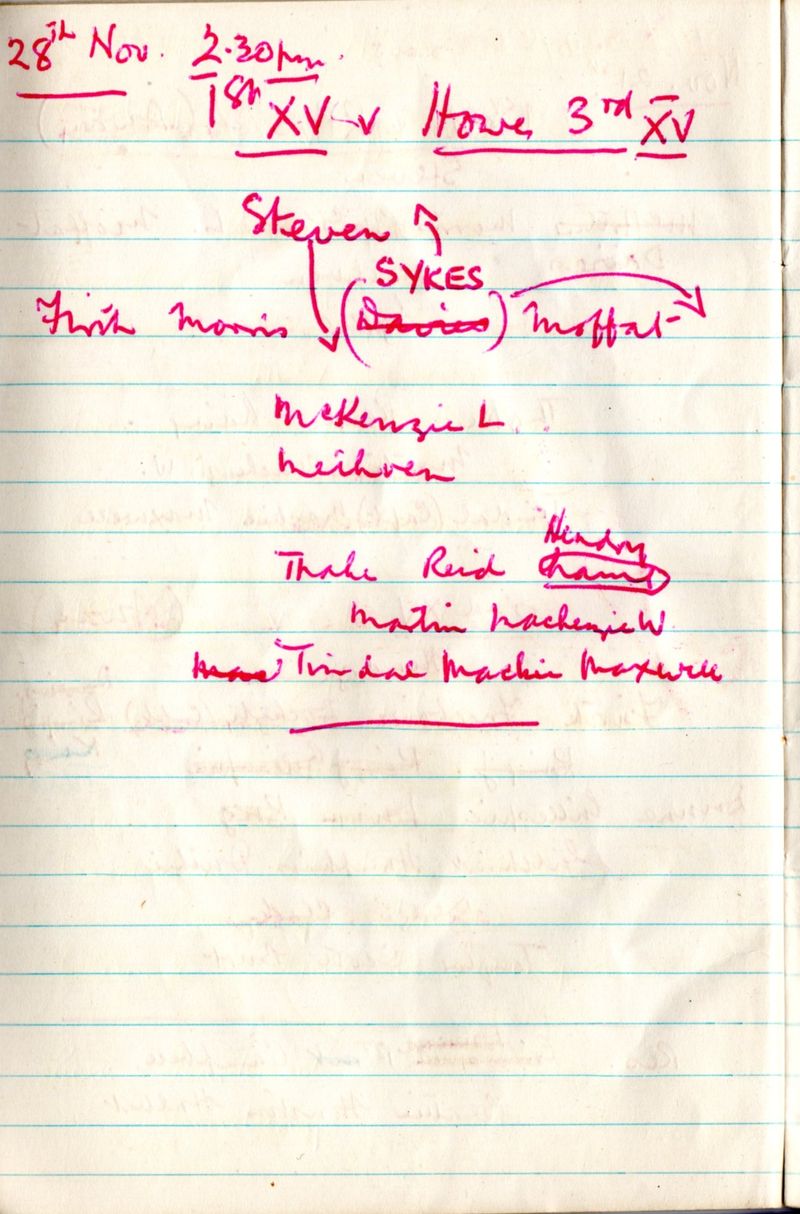 28th Nov. 2.30pm.
1st XV v Howe 3rd XV
Steven
SYKES
Firth Morris (Davies) Moffat
McKenzie L.
Methven
Hendry
Thake Reid
Martin Mackenzie W.
Tindal Mackie Maxwell